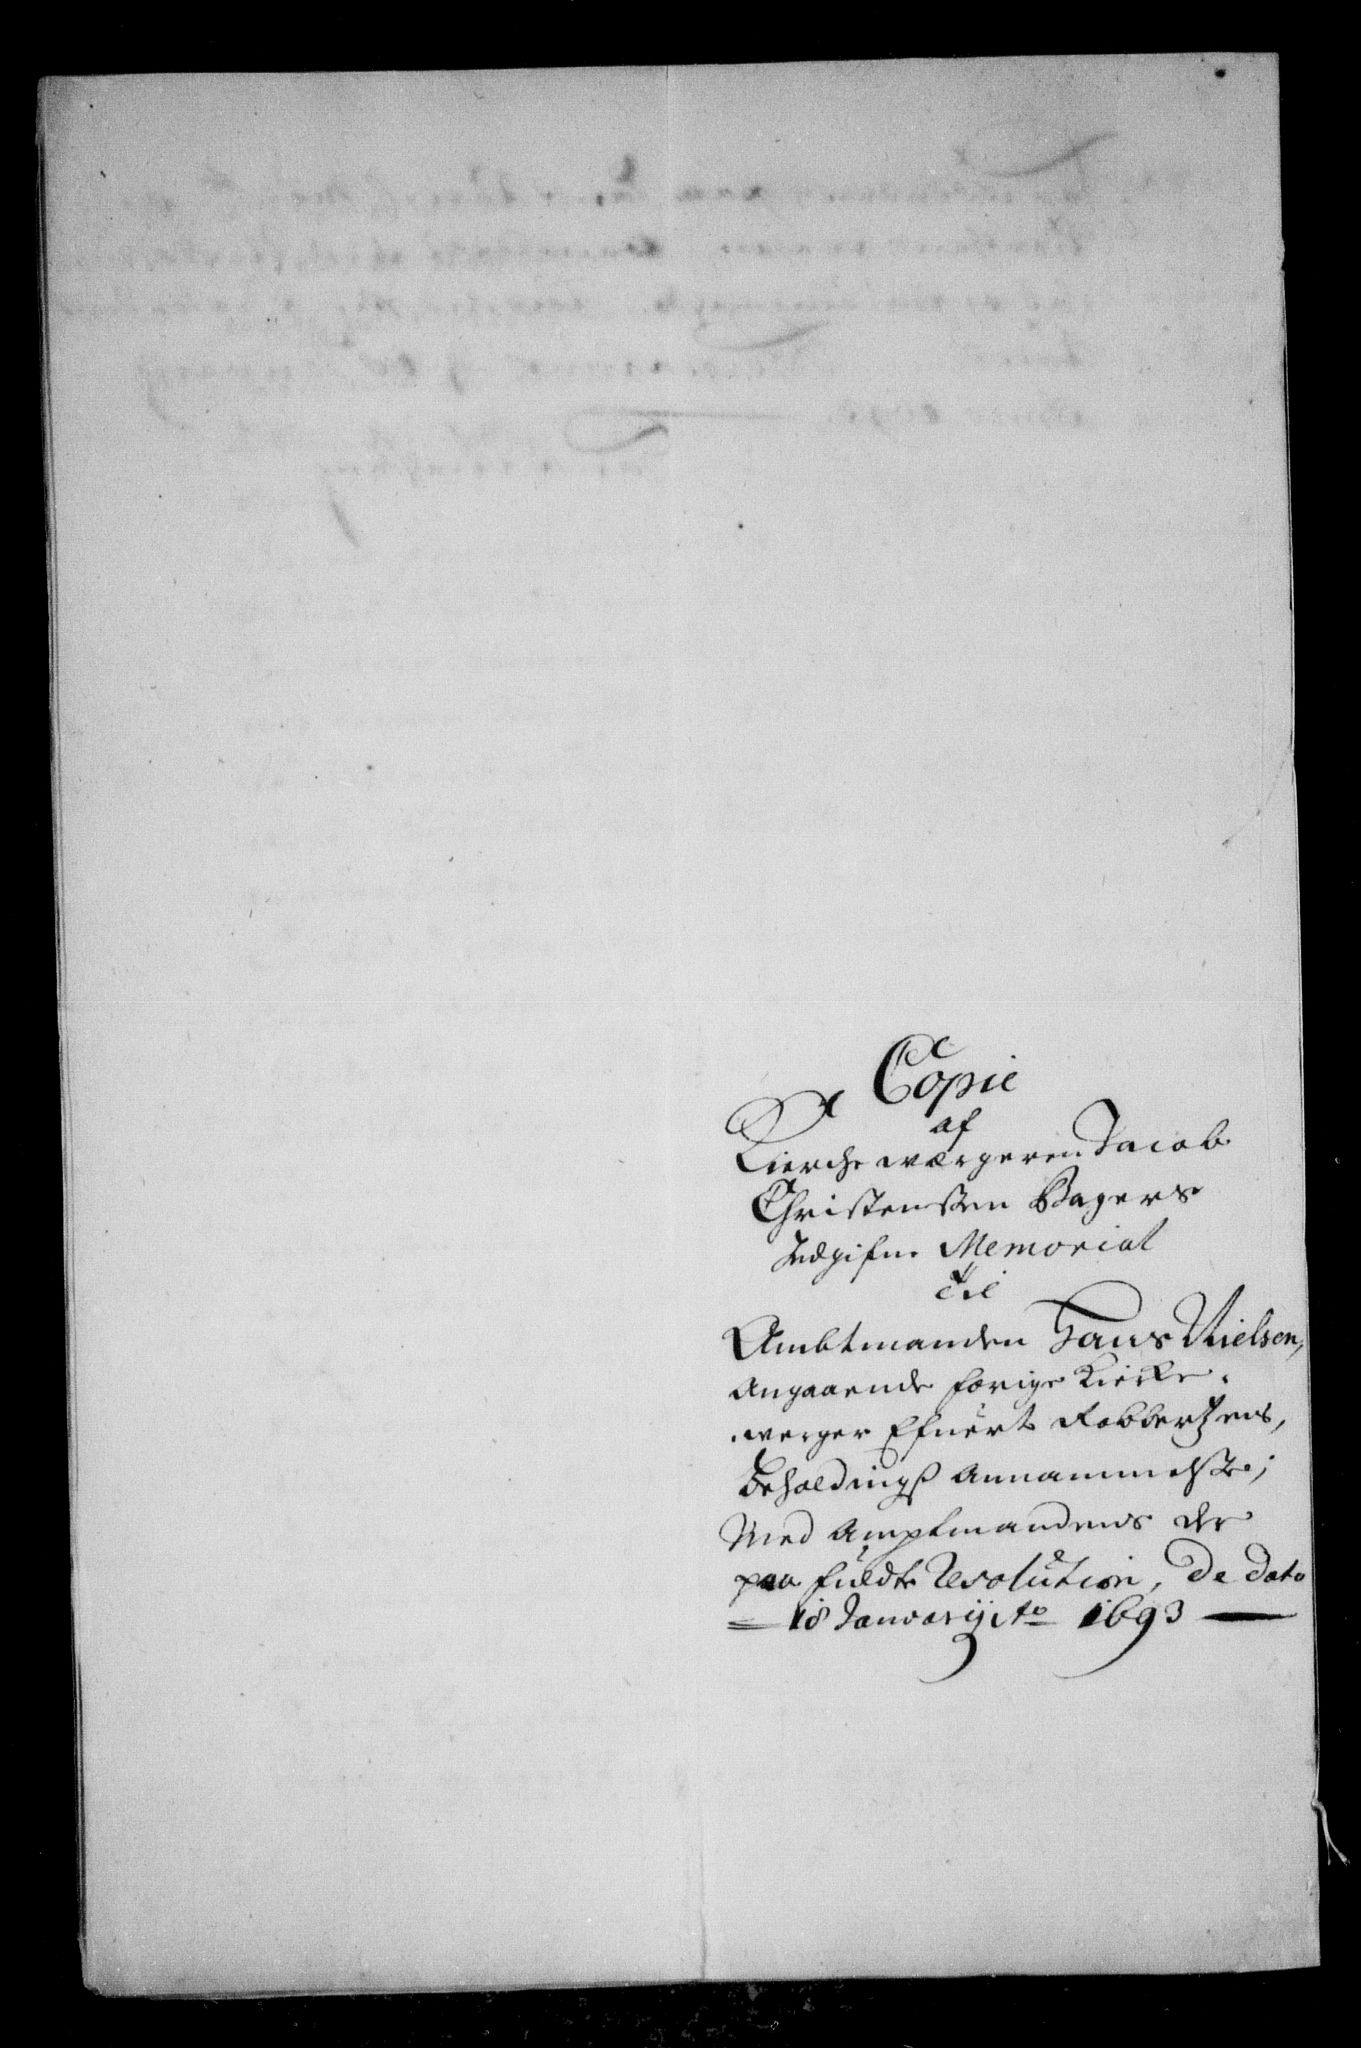 Copie
af
Kierche værgeren Jacob
Christenssen Bagers
Indgifne Memorial
til
Ambtmanden Hans Nielsen,
Angaaende forige Kierke-
werger Efuert Robbertzens,
Beholdings Annammelsse;
Med Amptmandens der
paa fuldte Resolution, De Dato
18 Januarij Ao 1693